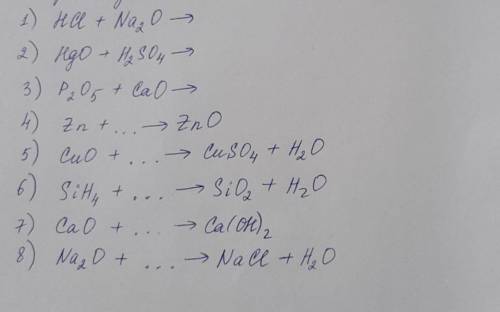 1) HCl + Na₂O →
2) HgO + H₂SO₄ →
3) P₂O₅ + CaO →
4) Zn + ... → ZnO
5) CuO + ... → CuSO₄ + H₂O
6) SiH₄ + ... → SiO₂ + H₂O
7) CaO + ... → Ca(OH)₂
8) Na₂O + ... → NaCl + H₂O